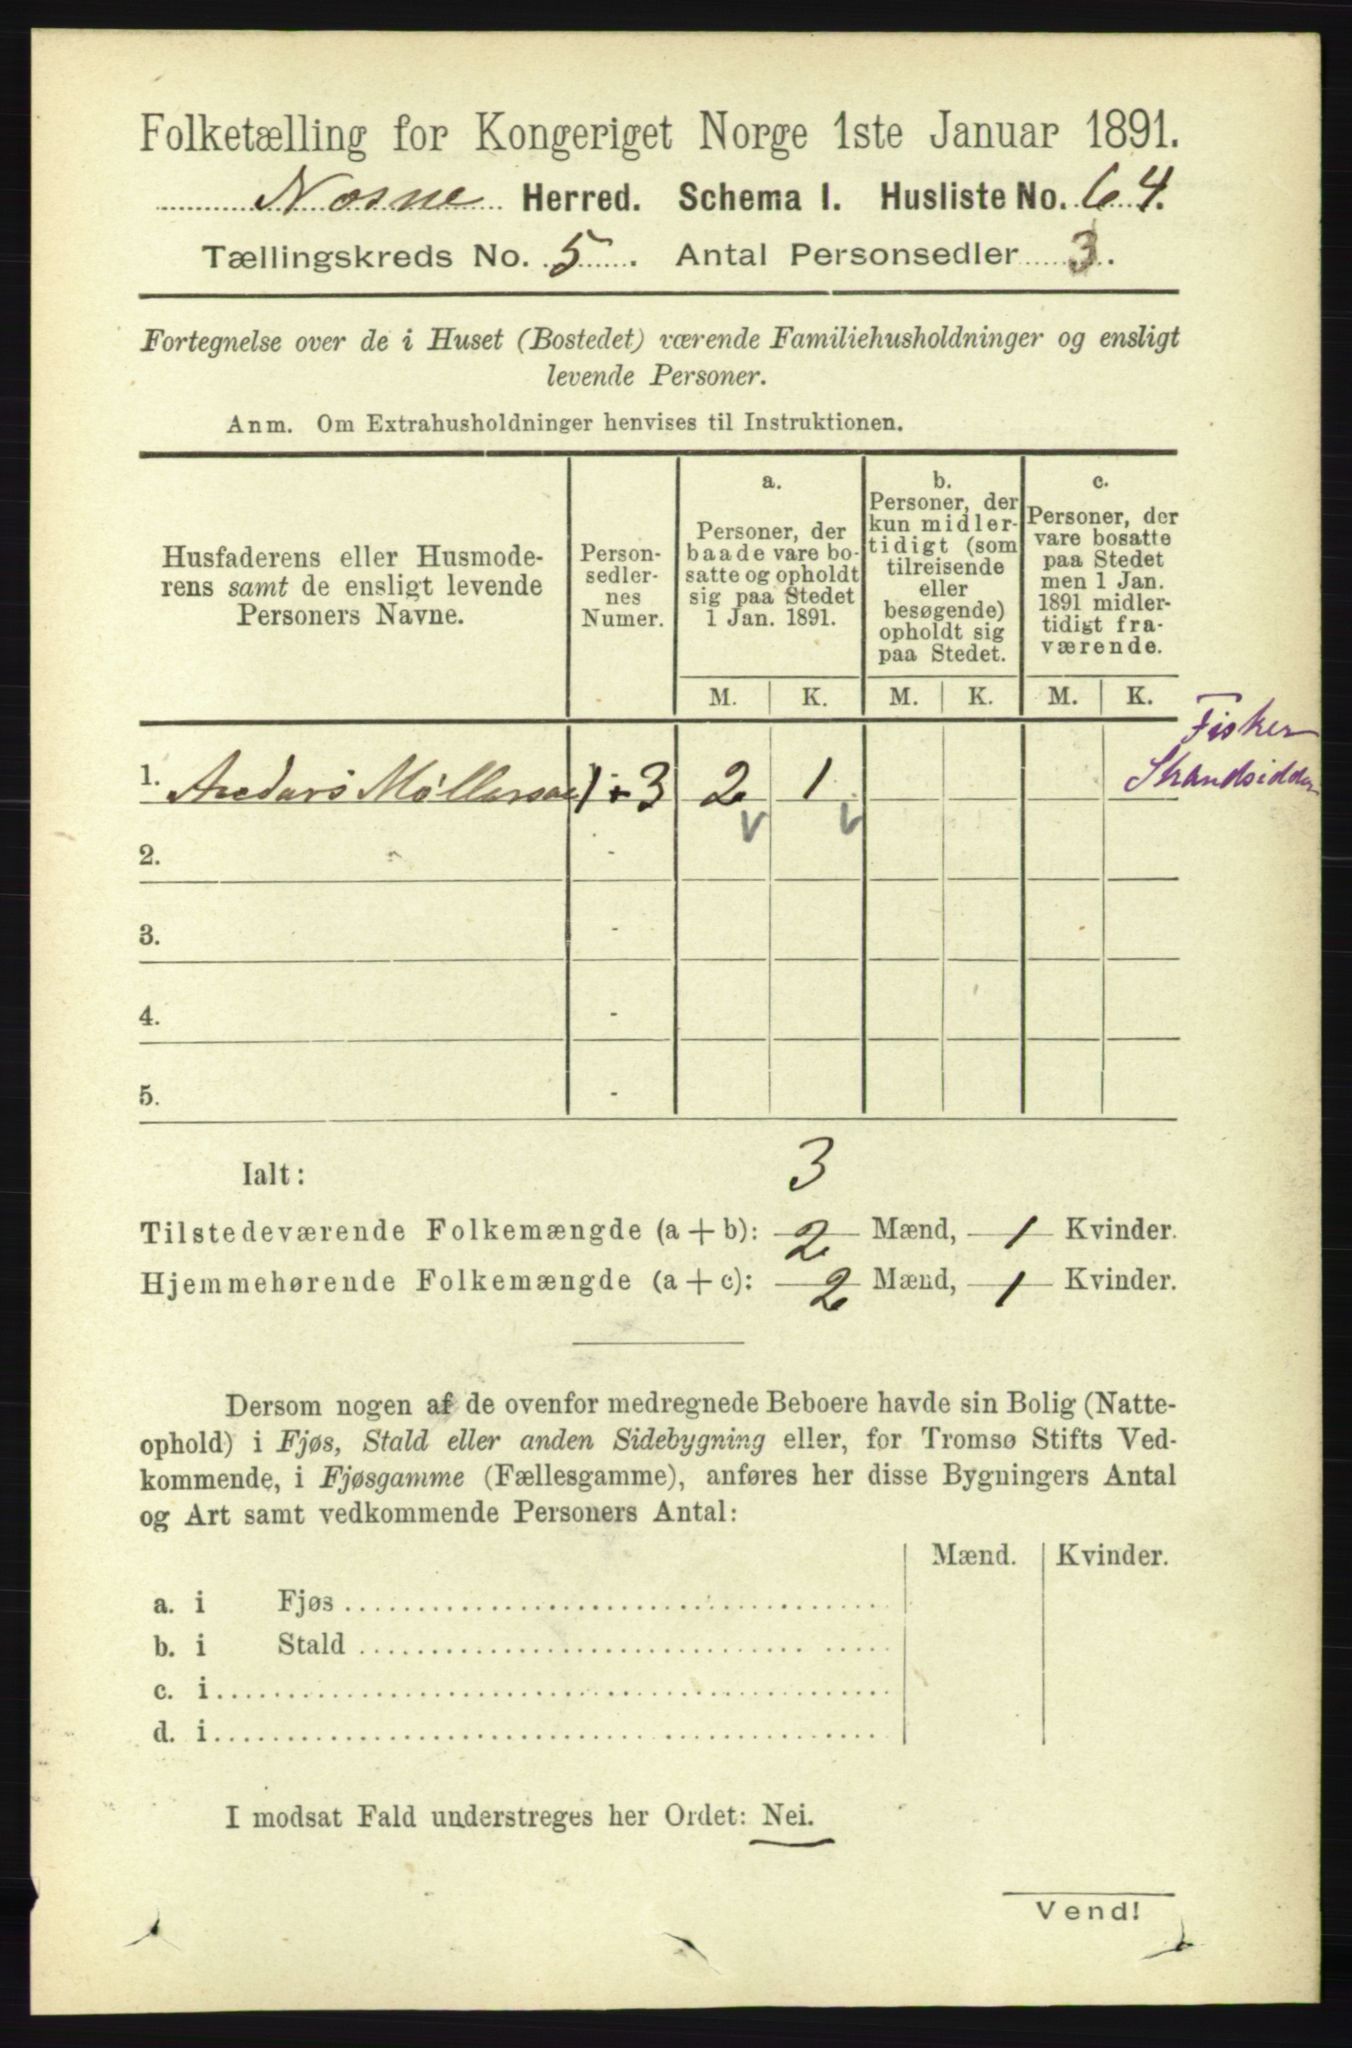 Folketælling for Kongeriget Norge 1ste Januar 1891.
Nesne Herred. Schema I. Husliste No. 64.
Tællingskreds No. 5. Antal Personsedler 3.
Fortegnelse over de i Huset (Bostedet) værende Familiehusholdninger og ensligt
levende Personer.
Anm. Om Extrahusholdninger henvises til Instruktionen.
Husfaderens eller Husmode-
rens samt de ensligt levende
Personers Navne.
Person-
sedler-
nes
Numer.
a.
Personer, der
baade vare bo-
satte og opholdt
sig paa Stedet
1 Jan. 1891.
b.
Personer, der
kun midler-
tidigt (som
tilreisende
eller
besøgende)
opholdt sig
paa Stedet.
c.
Personer, der
vare bosatte
paa Stedet
men 1 Jan.
1891 midler-
tidigt fra-
værende.
M. K. M. K. M. K.
Fisker
Strandsidder
1. Møllersen 1 - 3 2 1
2. -
3. -
4. -
5. -
Ialt: 3
Tilstedeværende Folkemængde (a + b): 2 Mænd, 1 Kvinder.
Hjemmehørende Folkemængde (a + c): 2 Mænd, 1 Kvinder.
Dersom nogen af de ovenfor medregnede Beboere havde sin Bolig (Natte-
ophold) i Fjøs, Stald eller anden Sidebygning eller, for Tromsø Stifts Ved-
kommende, i Fjøsgamme (Fællesgamme), anføres her disse Bygningers Antal
og Art samt vedkommende Personers Antal:
Mænd. Kvinder.
a. i Fjøs
b. i Stald
c. i
d. i
I modsat Fald understreges her Ordet: Nei.
Vend!